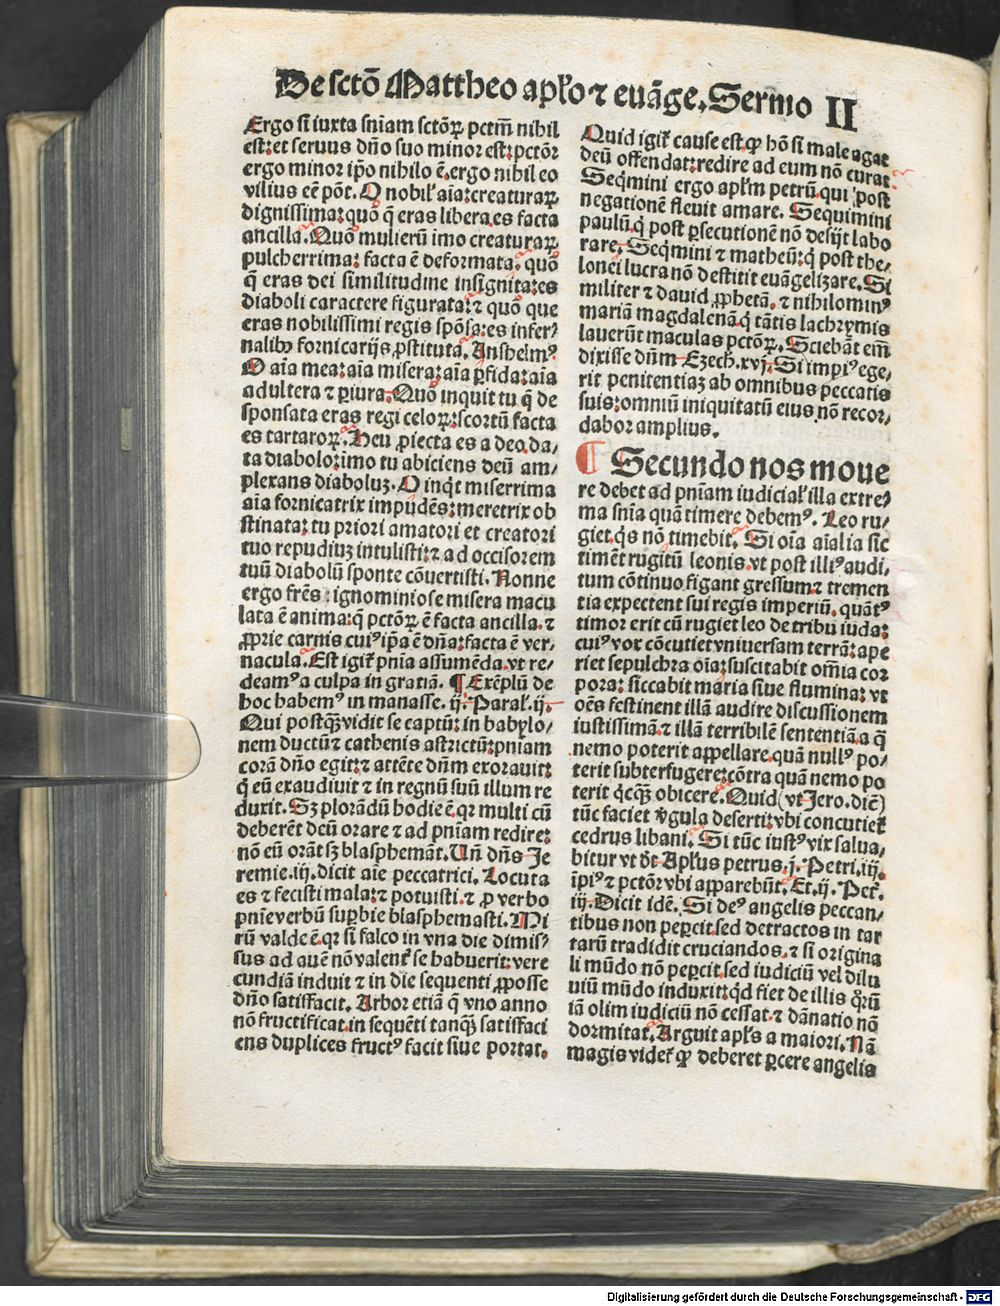 De sctō Mattheo apło ⁊ euāge. Sermo II
Ergo si iuxta sniam sctōꝝ pctm̄ nihil
est: et seruus dn̄o suo minor est: pctōr
ergo minor ip̄o nihilo ē. ergo nihil eo
vilius eē pōt. O nobil' aīa: creaturaꝝ
dignissima: quō q̄ eras libera. es facta
ancilla. Quō mulierū imo creaturaꝝ
pulcherrima: facta ē deformata. quō
q̄ eras dei similitudine insignita: es
diaboli caractere figurata: ⁊ quō que
eras nobilissimi regis spōsa: es infer⸗
nalibꝰ fornicarijs ꝓstituta. Anshelmꝰ
O aīa mea: aīa misera: aīa ꝑfida: aīa
adultera ⁊ ꝑiura. Quō inquit tu q̄ de
sponsata eras regi celoꝝ: scortū facta
es tartaroꝝ. Heu ꝓiecta es a deo. da⸗
ta diabolo: imo tu abiciens deū am⸗
plexans diaboluꝫ. O inq̇t miserrima
aīa fornicatrix impudēs: meretrix ob
stinata: tu priori amatori et creatori
tuo repudiuꝫ intulisti: ⁊ ad occisorem
tuū diabolū sponte cōuertisti. Nonne
ergo frēs: ignominiose misera macu
lata ē anima: q̄ pctōꝝ ē facta ancilla. ⁊
ꝓprie carnis cuiꝰ ip̄a ē dn̄a: facta ē ver
nacula. Est igit̄ pn̄ia assumēda. vt re⸗
deamꝰ a culpa in gratiā. ¶ Exēplū de
hoc habemꝰ in manasse. ij. Paral'. ij.
Qui postꝙ̄ vidit se captū: in babylo⸗
nem ductū ⁊ cathenis astrictū: pniam
corā dn̄o egit: ⁊ attēte dn̄m exorauit:
q̇ eū exaudiuit ⁊ in regnū suū illum re
duxit. Sꝫ plorādū hodie ē. qꝛ multi cū
deberēt deū orare ⁊ ad pniam redire:
nō eū orāt sꝫ blasphemāt. Un̄ dn̄s Je
remie. iij. dicit aīe peccatrici. Locuta
es ⁊ fecisti mala: ⁊ potuisti. ⁊ ꝓ verbo
pnīe verbū suꝑbie blasphemasti. Mi
rū valde ē. qꝛ si falco in vna die dimis⸗
sus ad auē nō valent' se habuerit: vere
cundiā induit ⁊ in die sequenti ꝓposse
dn̄o satisfacit. Arbor etiā q̄ vno anno
nō fructificat. in sequēti tanꝙ̄ satisfaci
ens duplices fructꝰ facit siue portat.
Quid igit̄ cause est. ꝙ hō si male agat
deū offendat: redire ad eum nō curat.
Seq̇mini ergo aplm̄ petrū. qui post
negationē fleuit amare. Sequimini
paulū. q̇ post ꝑsecutionē nō desijt labo
rare. Seq̇mini ⁊ matheū: q̇ post the⸗
lonei lucra nō destitit euāgelizare. Si
militer ⁊ dauid ꝓphetā. ⁊ nihilominꝰ
mariā magdalenā. q̇ tātis lachrymis
lauerūt maculas pctōꝝ. Sciebāt em̄
dixisse dn̄m Ezech. xvj. Si impiꝰ ege⸗
rit penitentiaꝫ ab omnibus peccatis
suis: omniū iniquitatū eius nō recor⸗
dabor amplius.
¶ Secundo nos moue
re debet ad pniam iudicial' illa extre⸗
ma snīa quā timere debemꝰ. Leo ru⸗
giet. q̇s nō timebit. Si oīa aīalia sic
timēt rugitū leonis. vt post illiꝰ audi⸗
tum cōtinuo figant gressum: ⁊ tremen
tia expectent sui regis imperiū. quātꝰ
timor erit cū rugiet leo de tribu iuda:
cuiꝰ vox cōcutiet vniuersam terrā: ape
riet sepulchra oīa: suscitabit om̄ia cor
pora: siccabit maria siue flumina: vt
oēs festinent illā audire discussionem
iustissimā. ⁊ illā terribilē sententiā. a q̄
nemo poterit appellare. quā nullꝰ po⸗
terit subterfugere: cōtra quā nemo po
terit q̇cꝙ̄ obicere. Quid (vt Jero. dic̄)
tūc faciet v̇gula deserti: vbi concutiet̄
cedrus libani. Si tūc iustꝰ vix salua⸗
bitur vt dt̄ Apłus petrus. j. Petri. iij.
īpiꝰ ⁊ pctōr vbi apparebūt. Et. ij. Pet̄.
iij. Dicit idē. Si deꝰ angelis peccan⸗
tibus non peꝑcit. sed detractos in tar
tarū tradidit cruciandos. ⁊ si origina
li mūdo nō peꝑcit. sed iudiciū vel dilu
uiū mūdo induxit: qd̄ fiet de illis q̊rū
iā olim iudiciū nō cessat. ⁊ dānatio nō
dormitat. Arguit apłs a maiori. Nā
magis videt̄ ꝙ deberet ꝑcere angelis
Digitalisierung gefördert durch die Deutsche Forschungsgemeinschaft - DFG